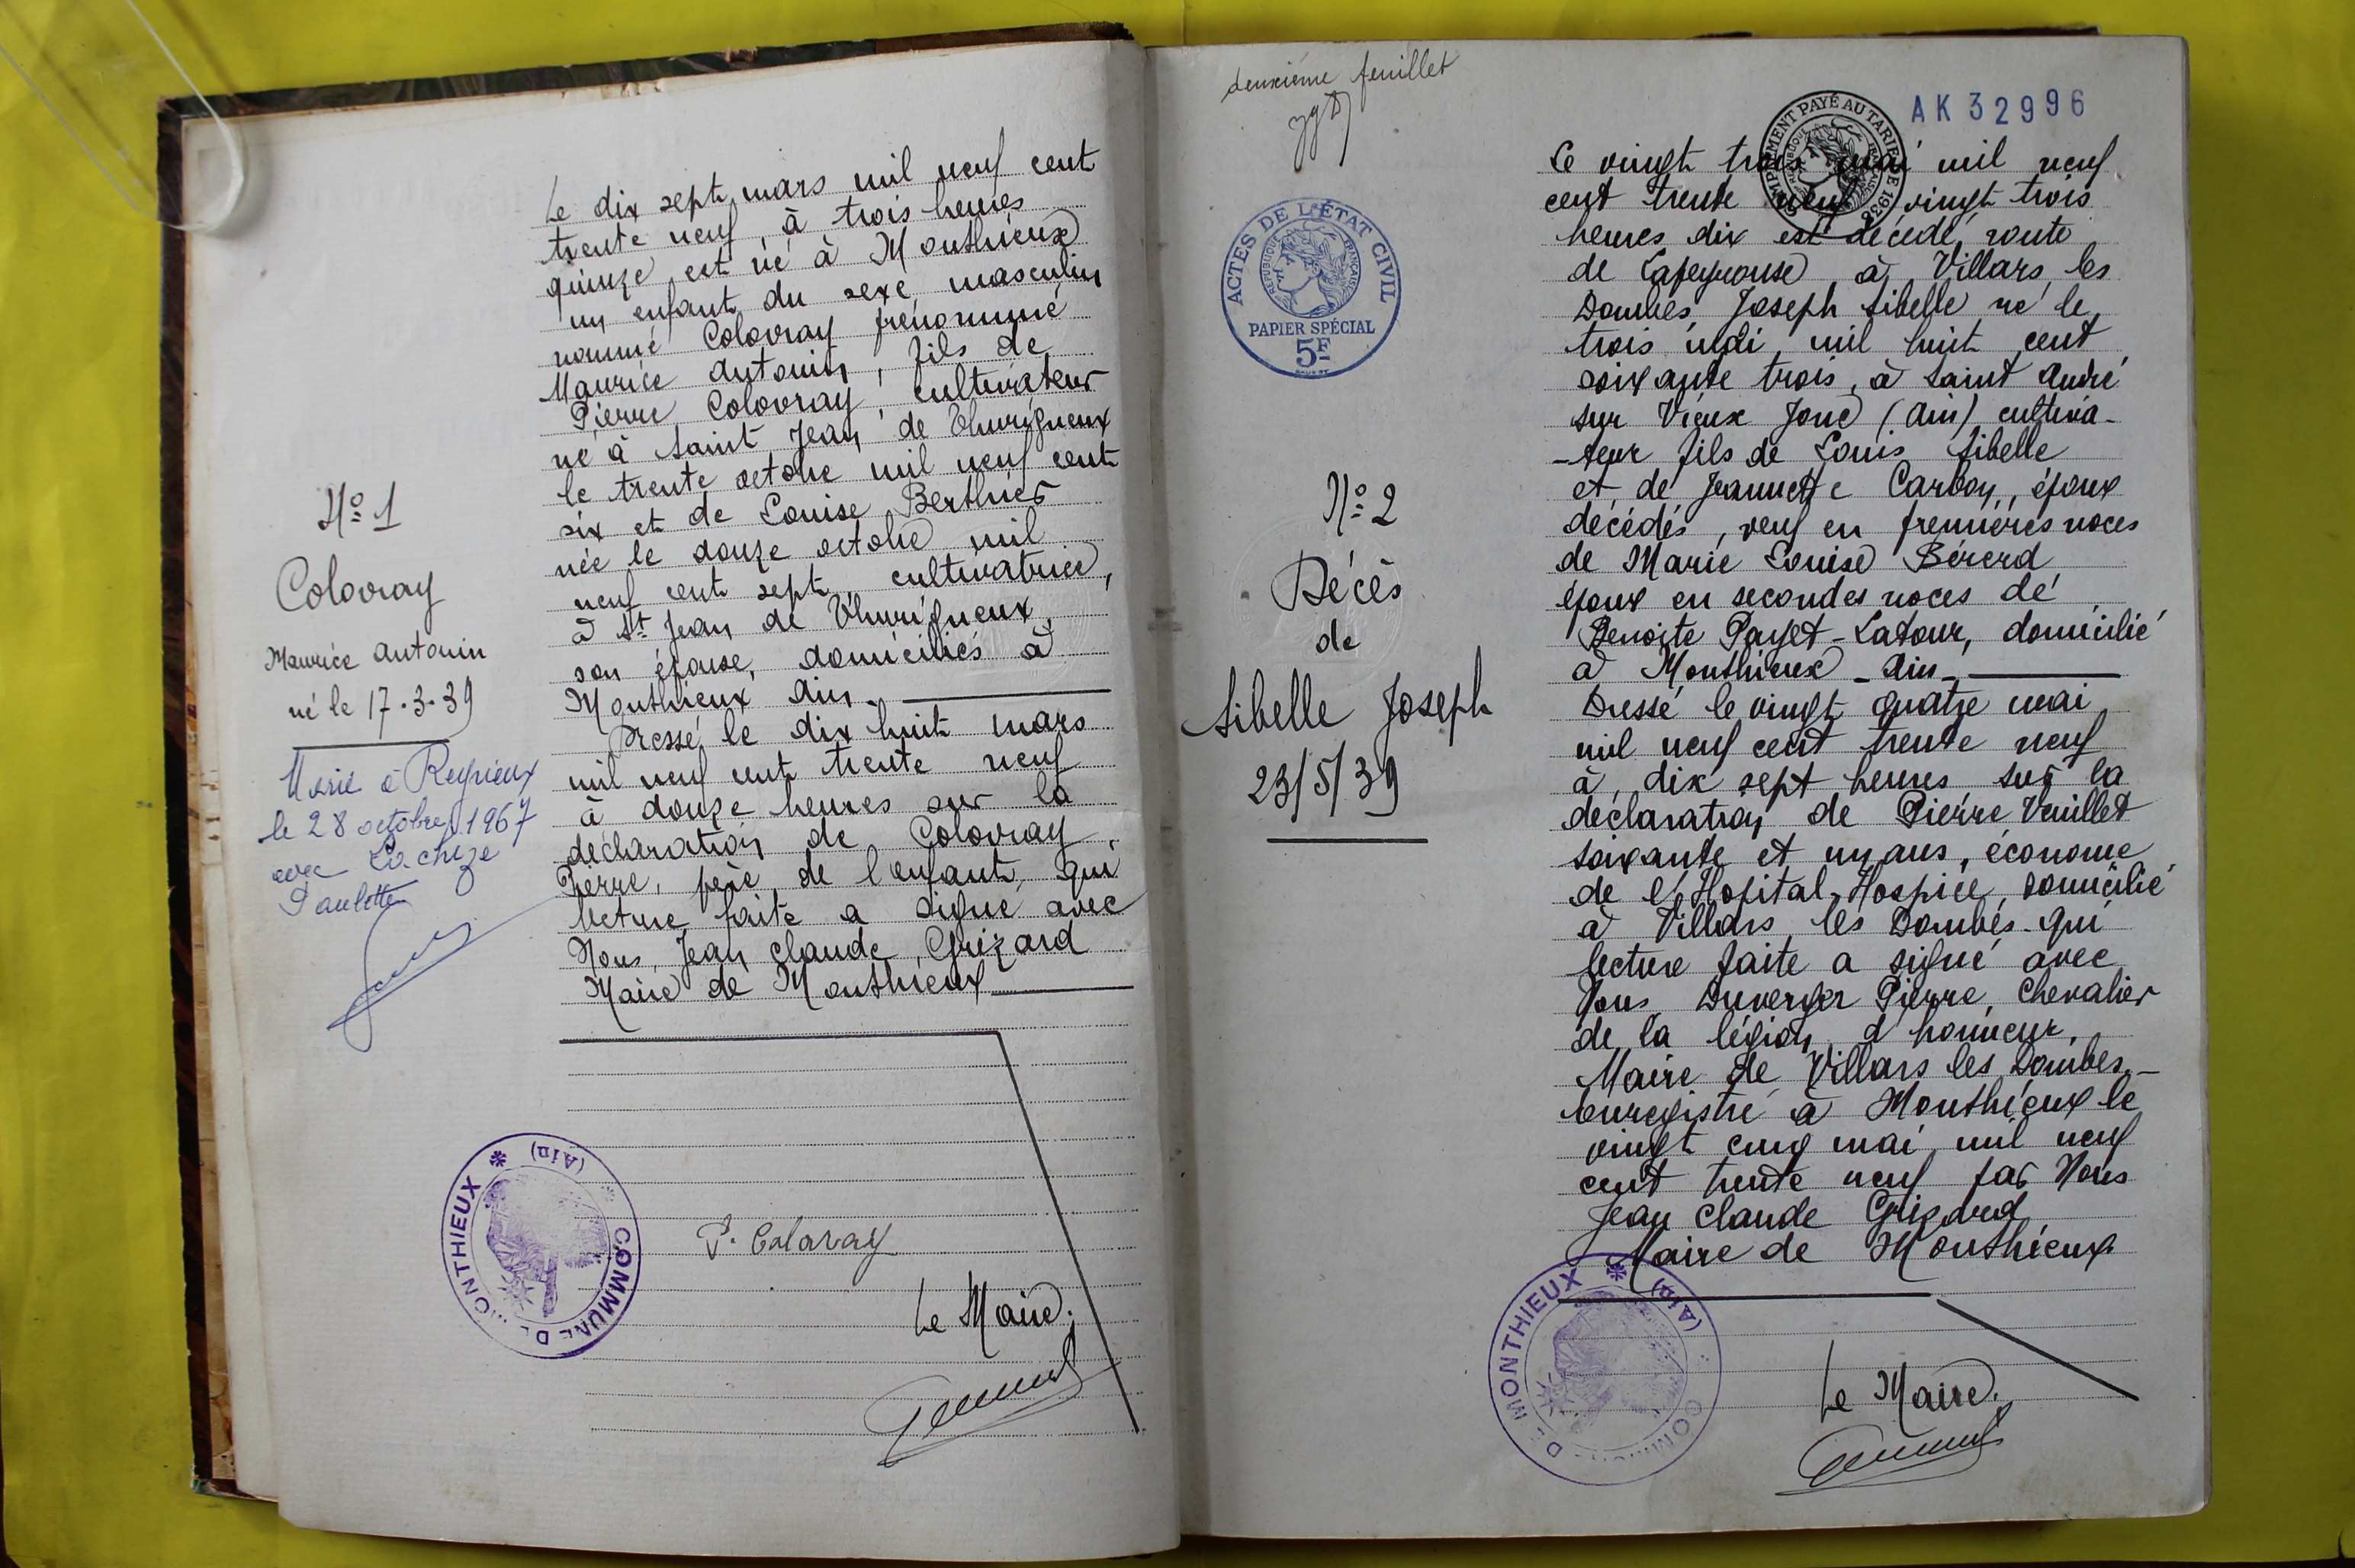 Nº 1
Colovray
Maurice Antonin
né le 17.3.39
Marié à Reyrieux
le 28 octobre 1967
avec Lachize
Paulette
Le dix sept mars mil neuf cent
trente neuf, à trois heures
quinze est né à Monthieux
un enfant du sexe masculin
nommé Colovray prénommé
Maurice Antonin, fils de
Pierre Colovray, cultivateur
né à Saint Jean de Thurigneux
le trente octobre mil neuf cent
six et de Louise Berthier
née le douze octobre mil
neuf cent sept, cultivatrice,
à St Jean de Thurigneux,
son épouse, domiciliés à
Monthieux Ain
Dressé le dix huit mars
mil neuf cent trente neuf
à douze heures sur la
déclaration de Colovray
Pierre, père de l'enfant, qui
lecture faite a signé avec
Nous, Jean Claude, Grizard
Maire de Monthieux
COMMUNE DE MONTHIEUX (Ain)
P. Colovray
Le Maire.
deuxième feuillet
ACTES DE L'ÉTAT CIVIL
RÉPUBLIQUE FRANÇAISE
PAPIER SPÉCIAL
5F
Nº 2
Décès
de
Sibelle Joseph
23/5/39
AK 32996
SUPPLÉMENT PAYÉ AU TARIF DE 1938
Le vingt trois mai mil neuf
cent trente neuf vingt trois
heures dix est décédé, route
de Lapeyrouse à Villars les
Dombes Joseph Sibelle né le
trois mai mil huit cent
soixante trois, à Saint André
sur Vieux Jonc (Ain) cultiva-
-teur fils de Louis Sibelle
et de Jeannette Carbon, époux
décédés, veuf en premières noces
de Marie Louise Bérerd
époux en secondes noces de
Benoite Payet-Latour, domicilié
à Monthieux - Ain -
Dressé le vingt quatre mai
mil neuf cent trente neuf
à dix sept heures sur la
déclaration de Pierre Vuillet
soixante et un ans, économe
de l'Hopital-Hospice, domicilié
à Villars les Dombes qui
lecture faite a signé avec
Nous Duverger Pierre, Chevalier
de la légion d'honneur,
Maire de Villars les Dombes -
Enregistré à Monthieux le
vingt cinq mai mil neuf
cent trente neuf par Nous
Jean Claude Grizard
Maire de Monthieux
COMMUNE DE MONTHIEUX (Ain)
Le Maire.